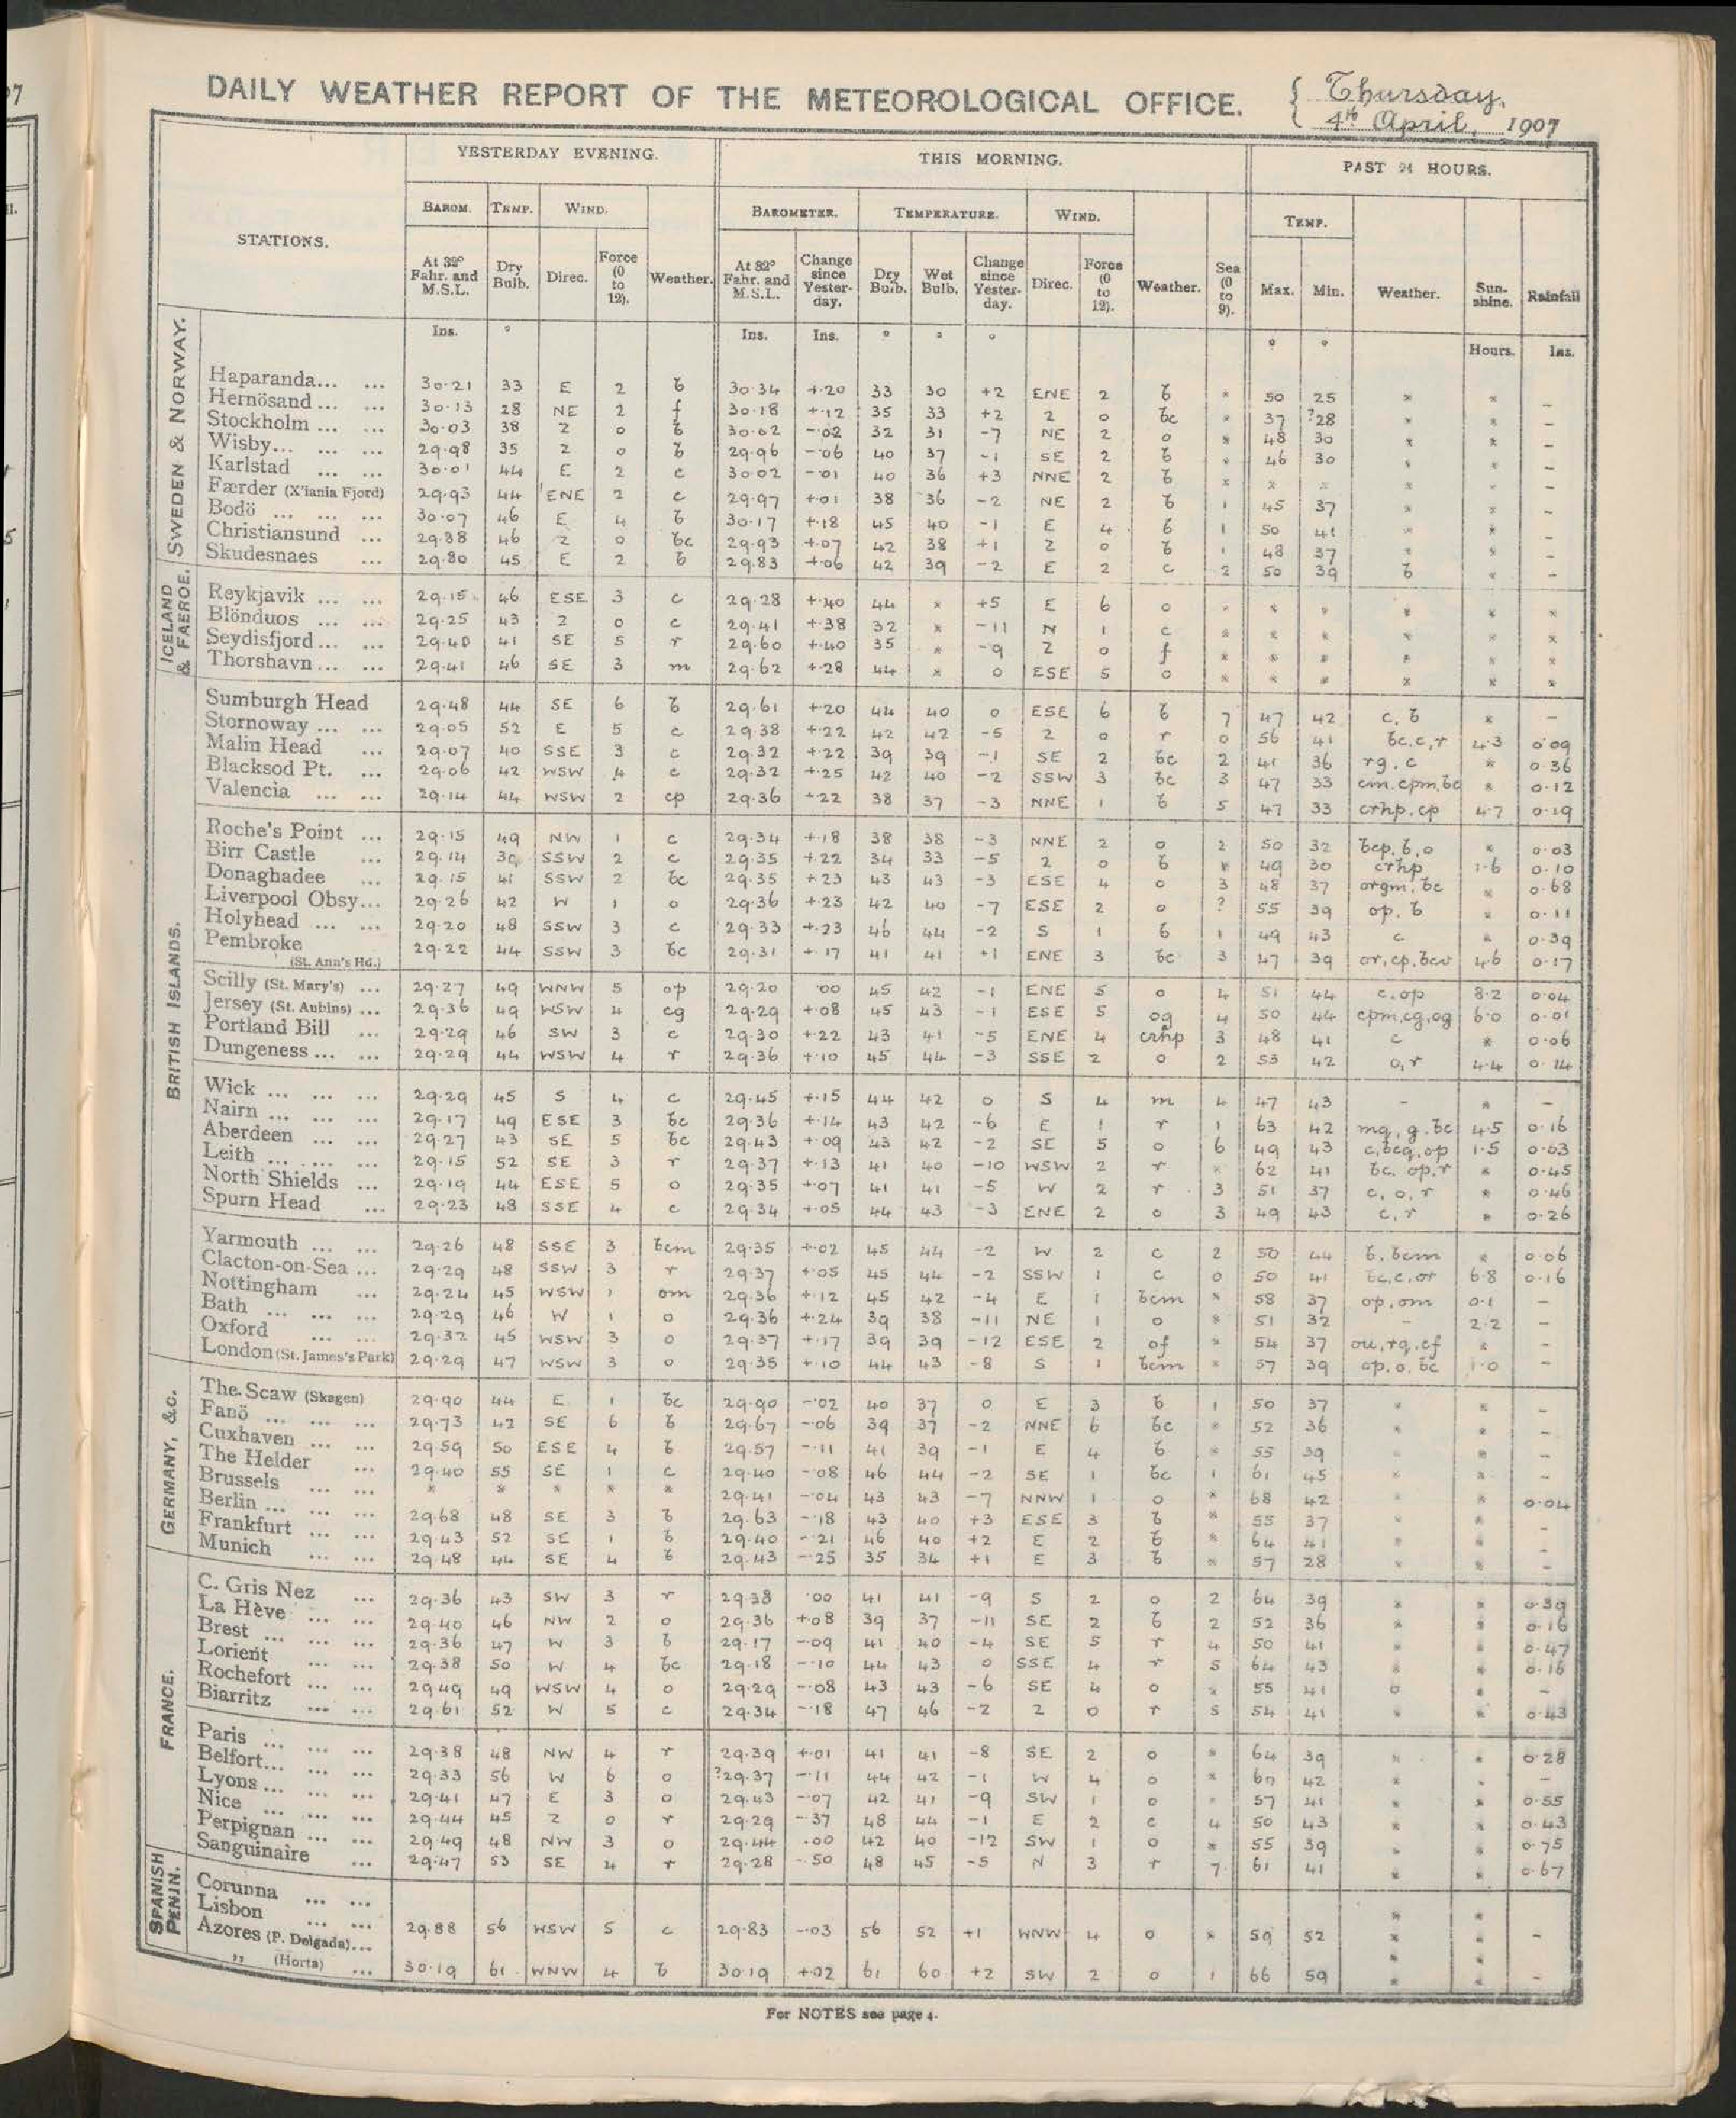 DAILY WEATHER REPORT OF THE METEOROLOGICAL OFFICE. Thursday,
4th April, 1907
YESTERDAY EVENING. THIS MORNING. PAST 24 HOURS.
BAROM. TEMP. WIND. BAROMETER. TEMPERATURE. WIND. TEMP.
STATIONS. At 32° Fahr. and M.S.L. Dry Bulb. Direc. Force (0 to 12). Weather. At 32° Fahr. and M.S.L. Change since Yester-day. Dry Bulb. Wet Bulb. Change since Yester-day. Direc. Force (0 to 12). Weather. Sea (0 to 9). Max. Min. Weather. Sun-shine. Rainfall
Ins. ° Ins. Ins. ° ° ° ° ° Hours. Ins.
SWEDEN & NORWAY.
Haparanda... ... 30·21 33 E 2 b 30·34 +·20 33 30 +2 ENE 2 b * 50 25 * * –
Hernösand ... ... 30·13 28 NE 2 f 30·18 +·12 35 33 +2 Z 0 bc * 37 ?28 * * –
Stockholm ... ... 30·03 38 Z 0 b 30·02 –·02 32 31 –7 NE 2 o * 48 30 * * –
Wisby... ... ... 29·98 35 Z 0 b 29·96 –·06 40 37 –1 SE 2 b * 46 30 * * –
Karlstad ... ... 30·01 44 E 2 c 30·02 –·01 40 36 +3 NNE 2 b * * * * * –
Færder (X'iania Fjord) 29·93 44 ENE 2 c 29·97 +·01 38 36 –2 NE 2 b 1 45 37 * * –
Bodö ... ... ... 30·07 46 E 4 b 30·17 +·18 45 40 –1 E 4 b 1 50 41 * * –
Christiansund ... 29·88 46 Z 0 bc 29·93 +·07 42 38 +1 Z 0 b 1 48 37 * * –
Skudesnaes ... 29·80 45 E 2 b 29·83 +·06 42 39 –2 E 2 c 2 50 39 b * –
ICELAND & FAEROE.
Reykjavik ... ... 29·15 46 ESE 3 c 29·28 +·40 44 * +5 E 6 o * * * * * *
Blönduos ... ... 29·25 43 Z 0 c 29·41 +·38 32 * –11 N 1 c * * * * * *
Seydisfjord ... ... 29·40 41 SE 5 r 29·60 +·40 35 * –9 Z 0 f * * * * * *
Thorshavn ... ... 29·41 46 SE 3 m 29·62 +·28 44 * 0 ESE 5 o * * * * * *
BRITISH ISLANDS.
Sumburgh Head 29·48 44 SE 6 b 29·61 +·20 44 40 0 ESE 6 b 7 47 42 c, b * –
Stornoway ... ... 29·05 52 E 5 c 29·38 +·22 42 42 –5 Z 0 r 0 56 41 bc.c,r 4·3 0·09
Malin Head ... 29·07 40 SSE 3 c 29·32 +·22 39 39 –1 SE 2 bc 2 41 36 rg. c * 0·36
Blacksod Pt. ... 29·06 42 WSW 4 c 29·32 +·25 42 40 –2 SSW 3 bc 3 47 33 cm.cpm,bc * 0·12
Valencia ... ... 29·14 44 WSW 2 cp 29·36 +·22 38 37 –3 NNE 1 b 5 47 33 crhp.cp 4·7 0·19
Roche's Point ... 29·15 49 NW 1 c 29·34 +·18 38 38 –3 NNE 2 o 2 50 32 bcp.b,o * 0·03
Birr Castle ... 29·14 SSW 2 c 29·35 +·22 34 33 –5 Z 0 b * 49 30 crhp 1·6 0·10
Donaghadee ... 29·15 41 SSW 2 bc 29·35 +·23 43 43 –3 ESE 4 o 3 48 37 orgm, bc * 0·68
Liverpool Obsy... 29·26 42 W 1 o 29·36 +·23 42 40 –7 ESE 2 o ? 55 39 op. b * 0·11
Holyhead ... ... 29·20 48 SSW 3 c 29·33 +·23 46 44 –2 S 1 b 1 49 43 c * 0·39
Pembroke (St. Ann's Hd.) 29·22 44 SSW 3 bc 29·31 +·17 41 41 +1 ENE 3 bc 3 47 39 or,cp.bcv 4·6 0·17
Scilly (St. Mary's) ... 29·27 49 WNW 5 op 29·20 ·00 45 42 –1 ENE 5 o 4 51 44 c.op 8·2 0·04
Jersey (St. Aubins) ... 29·36 49 WSW 4 cg 29·29 +·08 45 43 –1 ESE 5 og 4 50 44 cpm,cg,og 6·0 0·01
Portland Bill ... 29·29 46 SW 3 c 29·30 +·22 43 41 –5 ENE 4 crhp 3 48 41 c * 0·06
Dungeness ... ... 29·29 44 WSW 4 r 29·36 +·10 45 44 –3 SSE 2 o 2 53 42 o,r 4·4 0·14
Wick ... ... ... 29·29 45 S 4 c 29·45 +·15 44 42 0 S 4 m 4 47 43 – * –
Nairn ... ... ... 29·17 49 ESE 3 bc 29·36 +·14 43 42 –6 E 1 r 1 63 42 mq, g. bc 4·5 0·16
Aberdeen ... ... 29·27 43 SE 5 bc 29·43 +·09 43 42 –2 SE 5 o 6 49 43 c,bcq,op 1·5 0·03
Leith ... ... ... 29·15 52 SE 3 r 29·37 +·13 41 40 –10 WSW 2 r * 62 41 bc. op,r * 0·45
North Shields ... 29·19 44 ESE 5 o 29·35 +·07 41 41 –5 W 2 r 3 51 37 c, o, r * 0·46
Spurn Head ... 29·23 48 SSE 4 c 29·34 +·05 44 43 –3 ENE 2 o 3 49 43 c, r * 0·26
Yarmouth ... ... 29·26 48 SSE 3 bcm 29·35 +·02 45 44 –2 W 2 c 2 50 44 b. bcm * 0·06
Clacton-on-Sea ... 29·29 48 SSW 3 r 29·37 +·05 45 44 –2 SSW 1 c 0 50 41 bc.c,or 6·8 0·16
Nottingham ... 29·24 45 WSW 1 om 29·36 +·12 45 42 –4 E 1 bcm * 58 37 op,om 0·1 –
Bath ... ... ... 29·29 46 W 1 o 29·36 +·24 39 38 –11 NE 1 o * 51 32 – 2·2 –
Oxford ... ... 29·32 45 WSW 3 o 29·37 +·17 39 39 –12 ESE 2 of * 54 37 ou,rq,cf * –
London (St. James's Park) 29·29 47 WSW 3 o 29·35 +·10 44 43 –8 S 1 bcm * 57 39 op.o.bc 1·0 –
GERMANY, &c.
The Scaw (Skagen) 29·90 44 E 1 bc 29·90 –·02 40 37 0 E 3 b 1 50 37 * * –
Fanö ... ... ... 29·73 42 SE 6 b 29·67 –·06 39 37 –2 NNE 6 bc * 52 36 * * –
Cuxhaven ... ... 29·59 50 ESE 4 b 29·57 –·11 41 39 –1 E 4 b * 55 39 * * –
The Helder ... 29·40 55 SE 1 c 29·40 –·08 46 44 –2 SE 1 bc 1 61 45 * * –
Brussels ... ... * * * * * 29·41 –·04 43 43 –7 NNW 1 o * 68 42 * * 0·04
Berlin ... ... ... 29·68 48 SE 3 b 29·63 –·18 43 40 +3 ESE 3 b * 55 37 * * –
Frankfurt ... ... 29·43 52 SE 1 b 29·40 –·21 46 40 +2 E 2 b * 64 41 * * –
Munich ... ... 29·48 44 SE 4 b 29·43 –·25 35 34 +1 E 3 b * 57 28 * * –
FRANCE.
C. Gris Nez ... 29·36 43 SW 3 r 29·38 ·00 41 41 –9 S 2 o 2 64 39 * * 0·39
La Hève ... ... 29·40 46 NW 2 o 29·36 +·08 39 37 –11 SE 2 b 2 52 36 * * 0·16
Brest ... ... ... 29·36 47 W 3 b 29·17 –·09 41 40 –4 SE 5 r 4 50 41 * * 0·47
Lorient ... ... 29·38 50 W 4 bc 29·18 –·10 44 43 0 SSE 4 r 5 64 43 * * 0·16
Rochefort ... ... 29·49 49 WSW 4 o 29·29 –·08 43 43 –6 SE 4 o * 55 41 o * –
Biarritz ... ... 29·61 52 W 5 c 29·34 –·18 47 46 –2 Z 0 r 5 54 41 * * 0·43
Paris ... ... ... 29·38 48 NW 4 r 29·39 +·01 41 41 –8 SE 2 o * 64 39 * * 0·28
Belfort... ... ... 29·33 56 W 6 o ?29·37 –·11 44 42 –1 W 4 o * 42 * * –
Lyons ... ... ... 29·41 47 E 3 o 29·43 –·07 42 41 –9 SW 1 o * 57 41 * * 0·55
Nice ... ... ... 29·44 45 Z 0 r 29·29 –·37 48 44 –1 E 2 c 4 50 43 * * 0·43
Perpignan ... ... 29·49 48 NW 3 o 29·44 ·00 42 40 –12 SW 1 o * 55 39 * * 0·75
Sanguinaire ... 29·47 53 SE 4 r 29·28 –·50 48 45 –5 N 3 r 7 61 41 * * 0·67
SPANISH PENIN.
Corunna ... ... * *
Lisbon ... ... 29·88 56 WSW 5 c 29·83 –·03 56 52 +1 WNW 4 o * 59 52 * * –
Azores (P. Delgada)... * *
„ (Horta) ... 30·19 61 WNW 4 b 30·19 +·02 61 60 +2 SW 2 o 1 66 59 * * –
For NOTES see page 4.